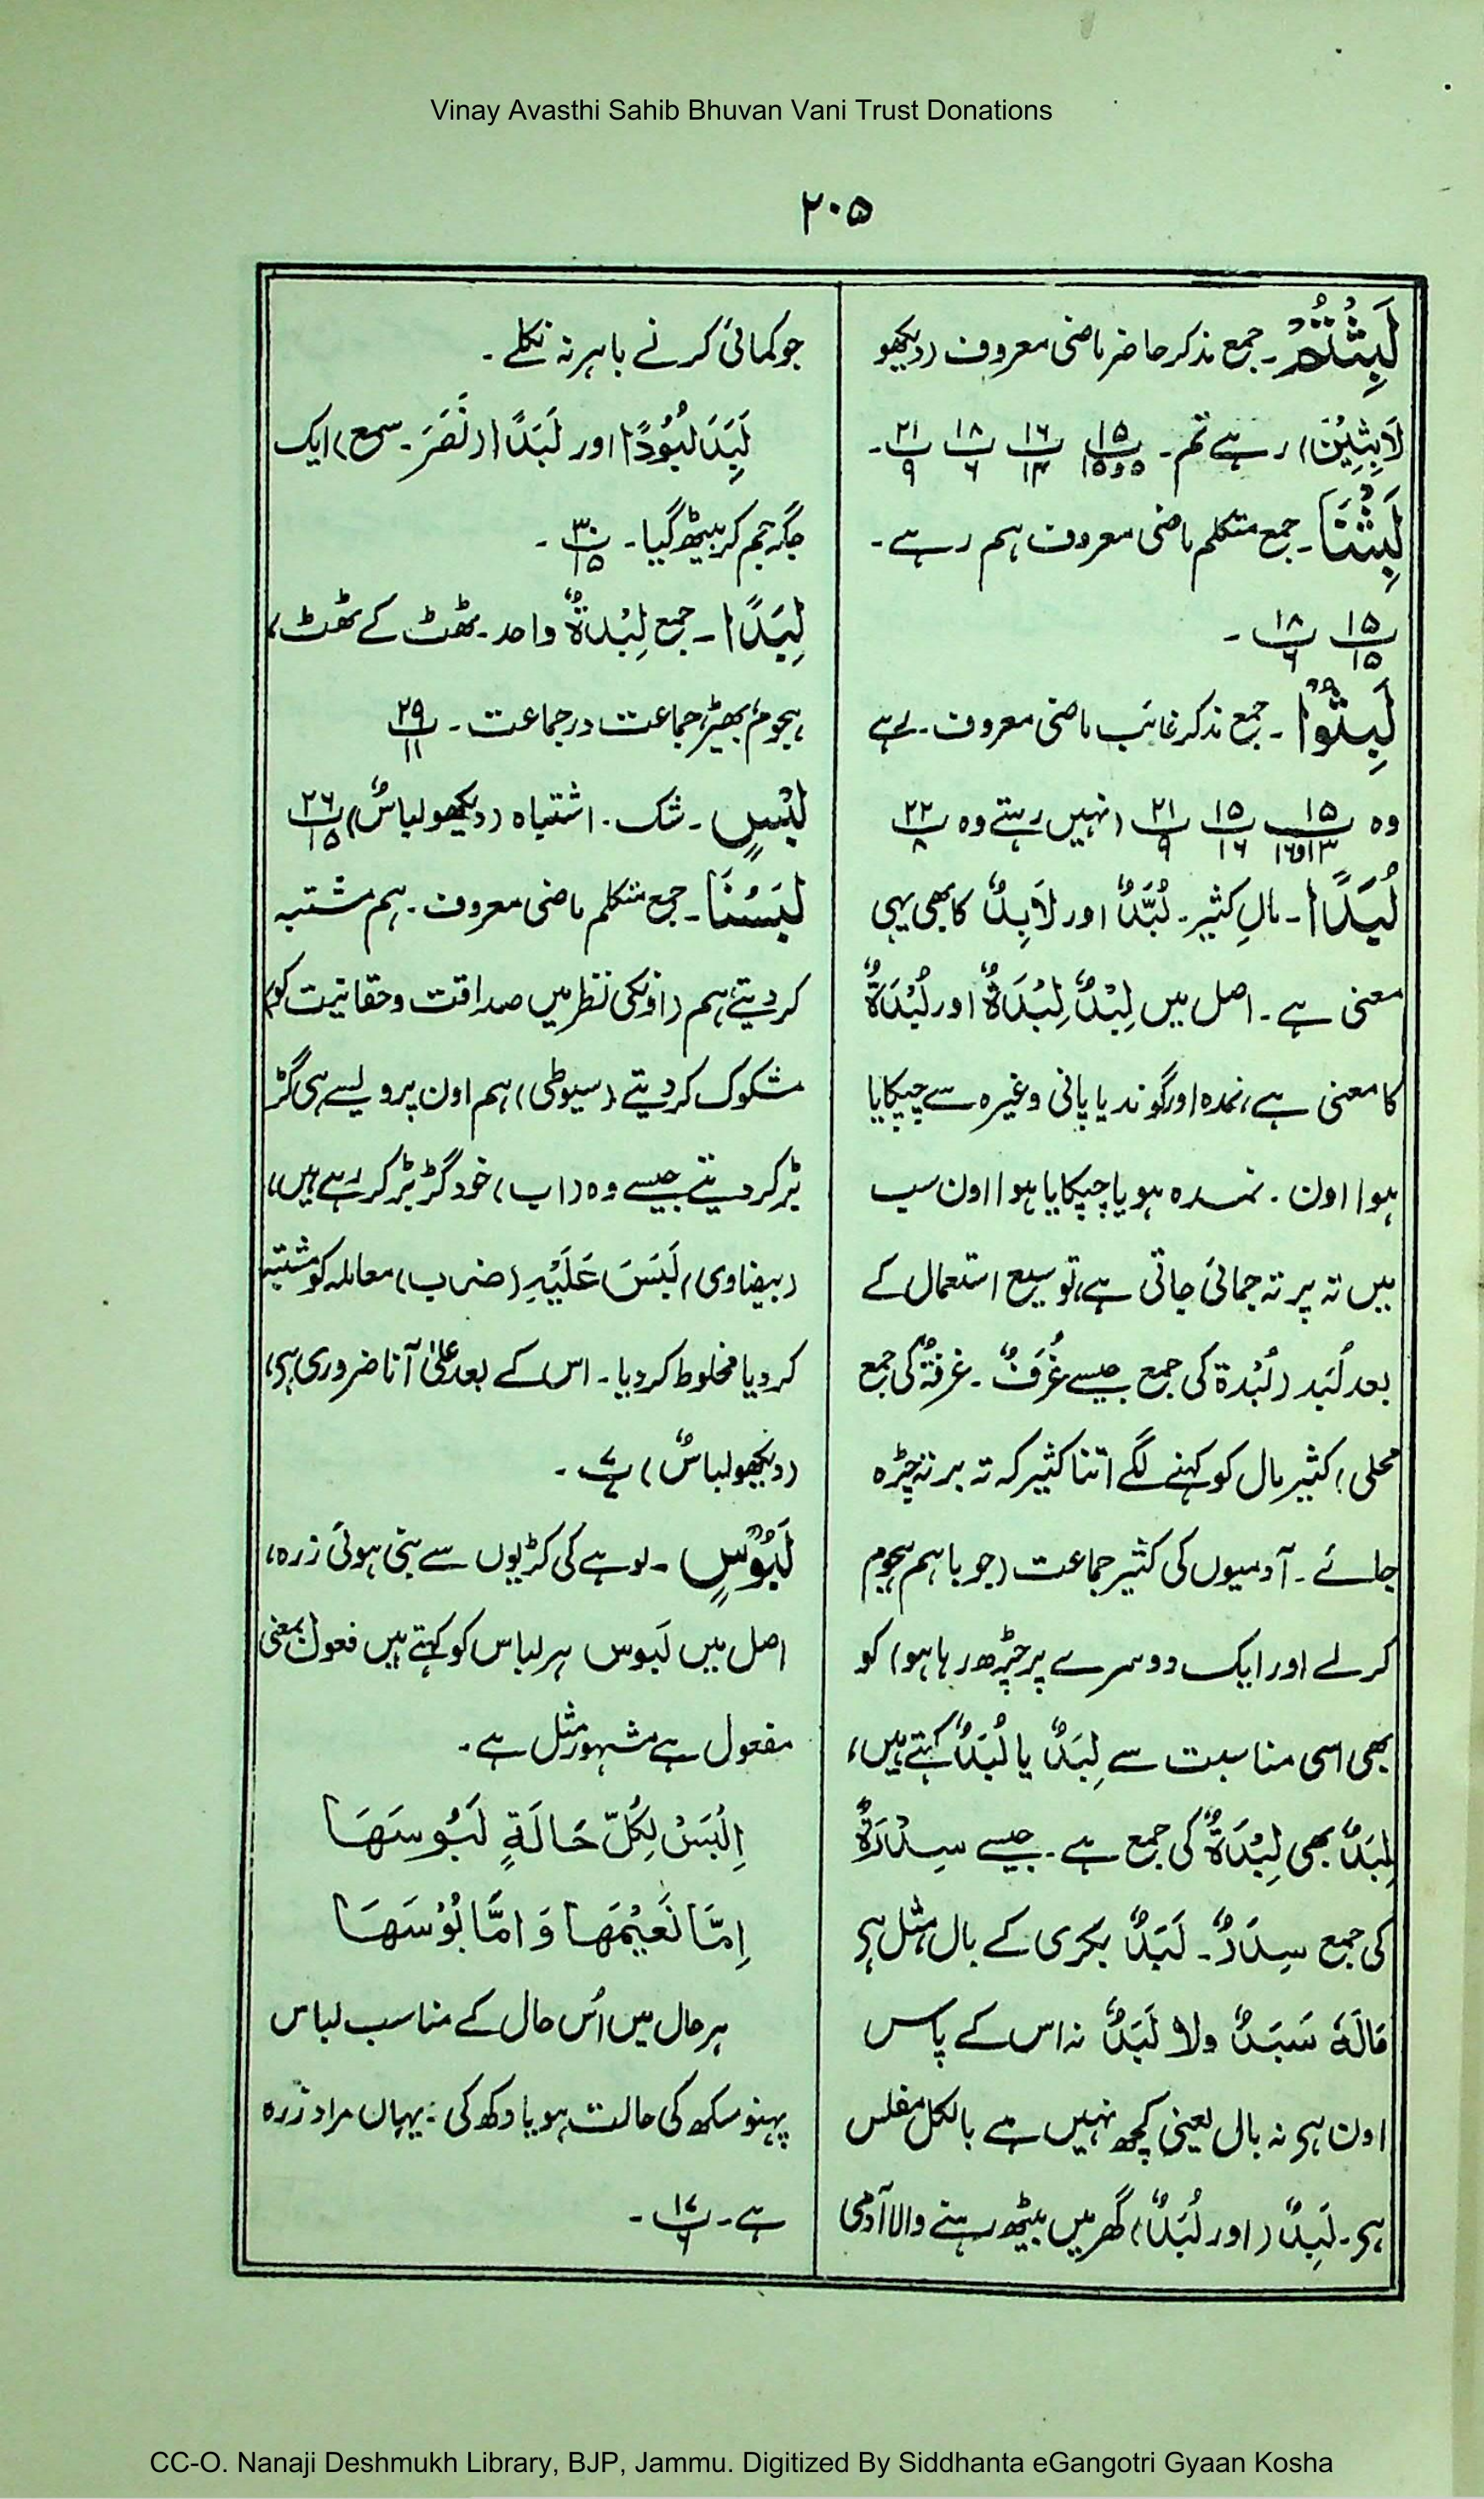 Vinay Avasthi Sahib Bhuvan Vani Trust Donations
۲۰۵
لَبِثْتُمْ ۔ جمع مذکر حاضر ماضی معروف (دیکھو
لَابِثِیْنَ) رہے تم ۔ ۱۵/۵و۱۵ ۱۶/۱۴ ۱۸/۶ ۲۱/۹ ۔
لَبِثْنَا ۔ جمع متکلم ماضی معروف ہم رہے ۔
۱۵/۱۵ ۱۸/۶ ۔
لَبِثُوْا ۔ جمع مذکر غائب ماضی معروف ۔ رہے
وہ ۱۵/۱۳و۱۶ ۱۵/۱۶ ۲۱/۹ (نہیں رہتے وہ ۲۲/۸
لُبَدًا ۔ مالِ کثیر ۔ لُبَّدٌ اور لَابِدٌ کا بھی یہی
معنی ہے ۔ اصل میں لِبْدٌ لِبْدَةٌ اور لُبْدَةٌ
کا معنی ہے، نمدہ اور گوند یا پانی وغیرہ سے چپکایا
ہوا اون ۔ نمدہ ہو یا چپکایا ہوا اون سب
میں تہ پر تہ جمائی جاتی ہے، توسیع استعمال کے
بعد لُبَد (لُبْدة کی جمع جیسے غُرَفٌ ۔ غرفةٌ کی جمع
محلی) کثیر مال کو کہنے لگے اتنا کثیر کہ تہ بر تہ چڑہ
جائے ۔ آدمیوں کی کثیر جماعت (جو باہم ہجوم
کرلے اور ایک دوسرے پر چڑھ رہا ہو) کو
بھی اسی مناسبت سے لِبَدٌ یا لُبَدٌ کہتے ہیں،
لِبَدٌ بھی لِبْدَةٌ کی جمع ہے ۔ جیسے سِدْرَةٌ
کی جمع سِدَرٌ ۔ لَبَدٌ بکری کے بال، مثل ہی
مَالَهٗ سَبَدٌ ولا لَبَدٌ نہ اس کے پاس
اون ہی نہ بال یعنی کچھ نہیں ہے بالکل مفلس
ہی ۔ لَبِدٌ (اور لُبَدٌ) گھر میں بیٹھ رہنے والا آدمی
جو کمائی کرنے باہر نہ نکلے ۔
لَبَدَ لُبُوْدًا اور لَبَدًا (نَصَرَ ۔ سمع) ایک
جگہ جم کر بیٹھ گیا ۔ ۳۰/۱۵ ۔
لِبَدًا ۔ جمع لِبْدَةٌ واحد ۔ ٹھٹ کے ٹھٹ،
ہجوم، بھیڑ، جماعت در جماعت ۔ ۲۹/۱۱
لَبْسٍ ۔ شک ۔ اشتباہ (دیکھو لباسٌ) ۲۶/۱۵
لَبَسْنَا ۔ جمع متکلم ماضی معروف ۔ ہم مشتبہ
کردیتے، ہم (اونکی نظر میں صداقت وحقانیت کو)
مشکوک کردیتے (سیوطی) ہم اون پر ویسے ہی گڑ
بڑ کردیتے جیسے وہ (اب) خود گڑبڑ کر رہے ہیں،
(بیضاوی) لَبَسَ عَلَیْهِ (ضرب) معاملہ کو مشتبہ
کردیا مخلوط کردیا ۔ اس کے بعد علیٰ آنا ضروری ہی،
(دیکھو لباسٌ) ۷/۷ ۔
لَبُوْسٍ ۔ لوہے کی کڑیوں سے بنی ہوئی زرہ،
اصل میں لَبوس ہر لباس کو کہتے ہیں فعول بمعنی
مفعول ہے مشہور مثل ہے ۔
اِلْبَسْ لِکُلِّ حَالَةٍ لَبُوسَهَا
اِمَّا نَعِیْمَهَا وَ اِمَّا بُوْسَهَا
ہر حال میں اُس حال کے مناسب لباس
پہنو سکھ کی حالت ہو یا دکھ کی ۔ یہاں مراد زرہ
ہے ۔ ۱۷/۶ ۔
CC-O. Nanaji Deshmukh Library, BJP, Jammu. Digitized By Siddhanta eGangotri Gyaan Kosha